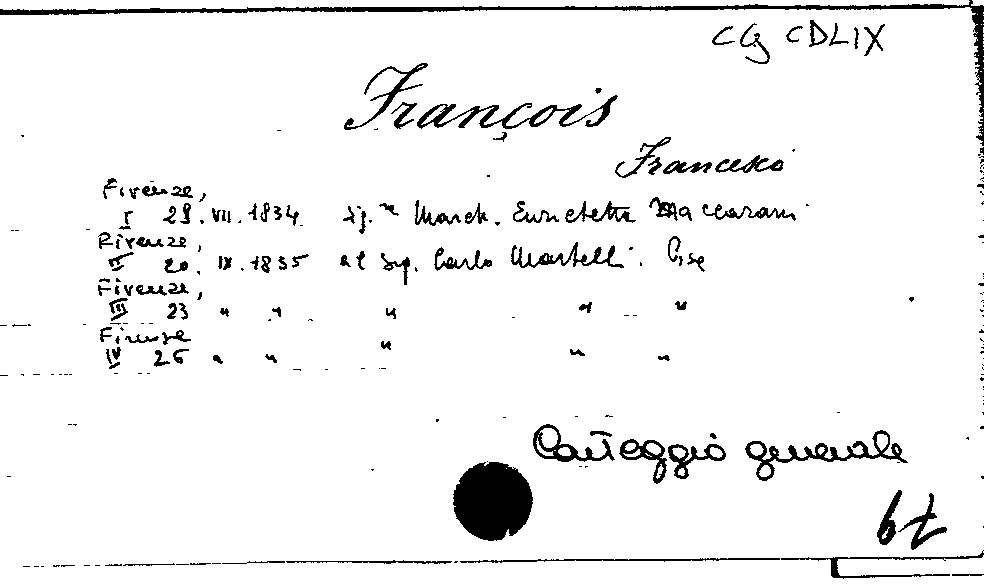 CG CDLIX
François
Francesco
Firenze,
I 29. VII. 1834 Sig.ra March. Enrichetta Maccarani
Firenze,
II 20. IX. 1835 al Sig. Carlo Martelli. Pisa
Firenze,
III 23 " " " " "
Firenze
IV 26 " " " " "
Carteggio generale
67